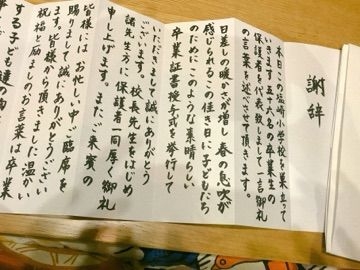 謝辞
本日この塩崎小学校を巣立って
いきます五十六名の卒業生の
保護者を代表致しまして一言御礼
の言葉を述べさせて頂きます。
日差しの暖かさが増し春の息吹が
感じられるこの佳き日に子どもたち
のためにこのような素晴らしい
卒業証書授与式を挙行して
いただきまして誠にありがとう
ございます。校長先生をはじめ
諸先生方に保護者一同厚く御礼
申し上げます。またご来賓の
皆様にはお忙しい中ご臨席を
賜りまして誠にありがとうござい
ます。皆様から頂きました温かい
祝福と励ましのお言葉は卒業
する子ども達の胸